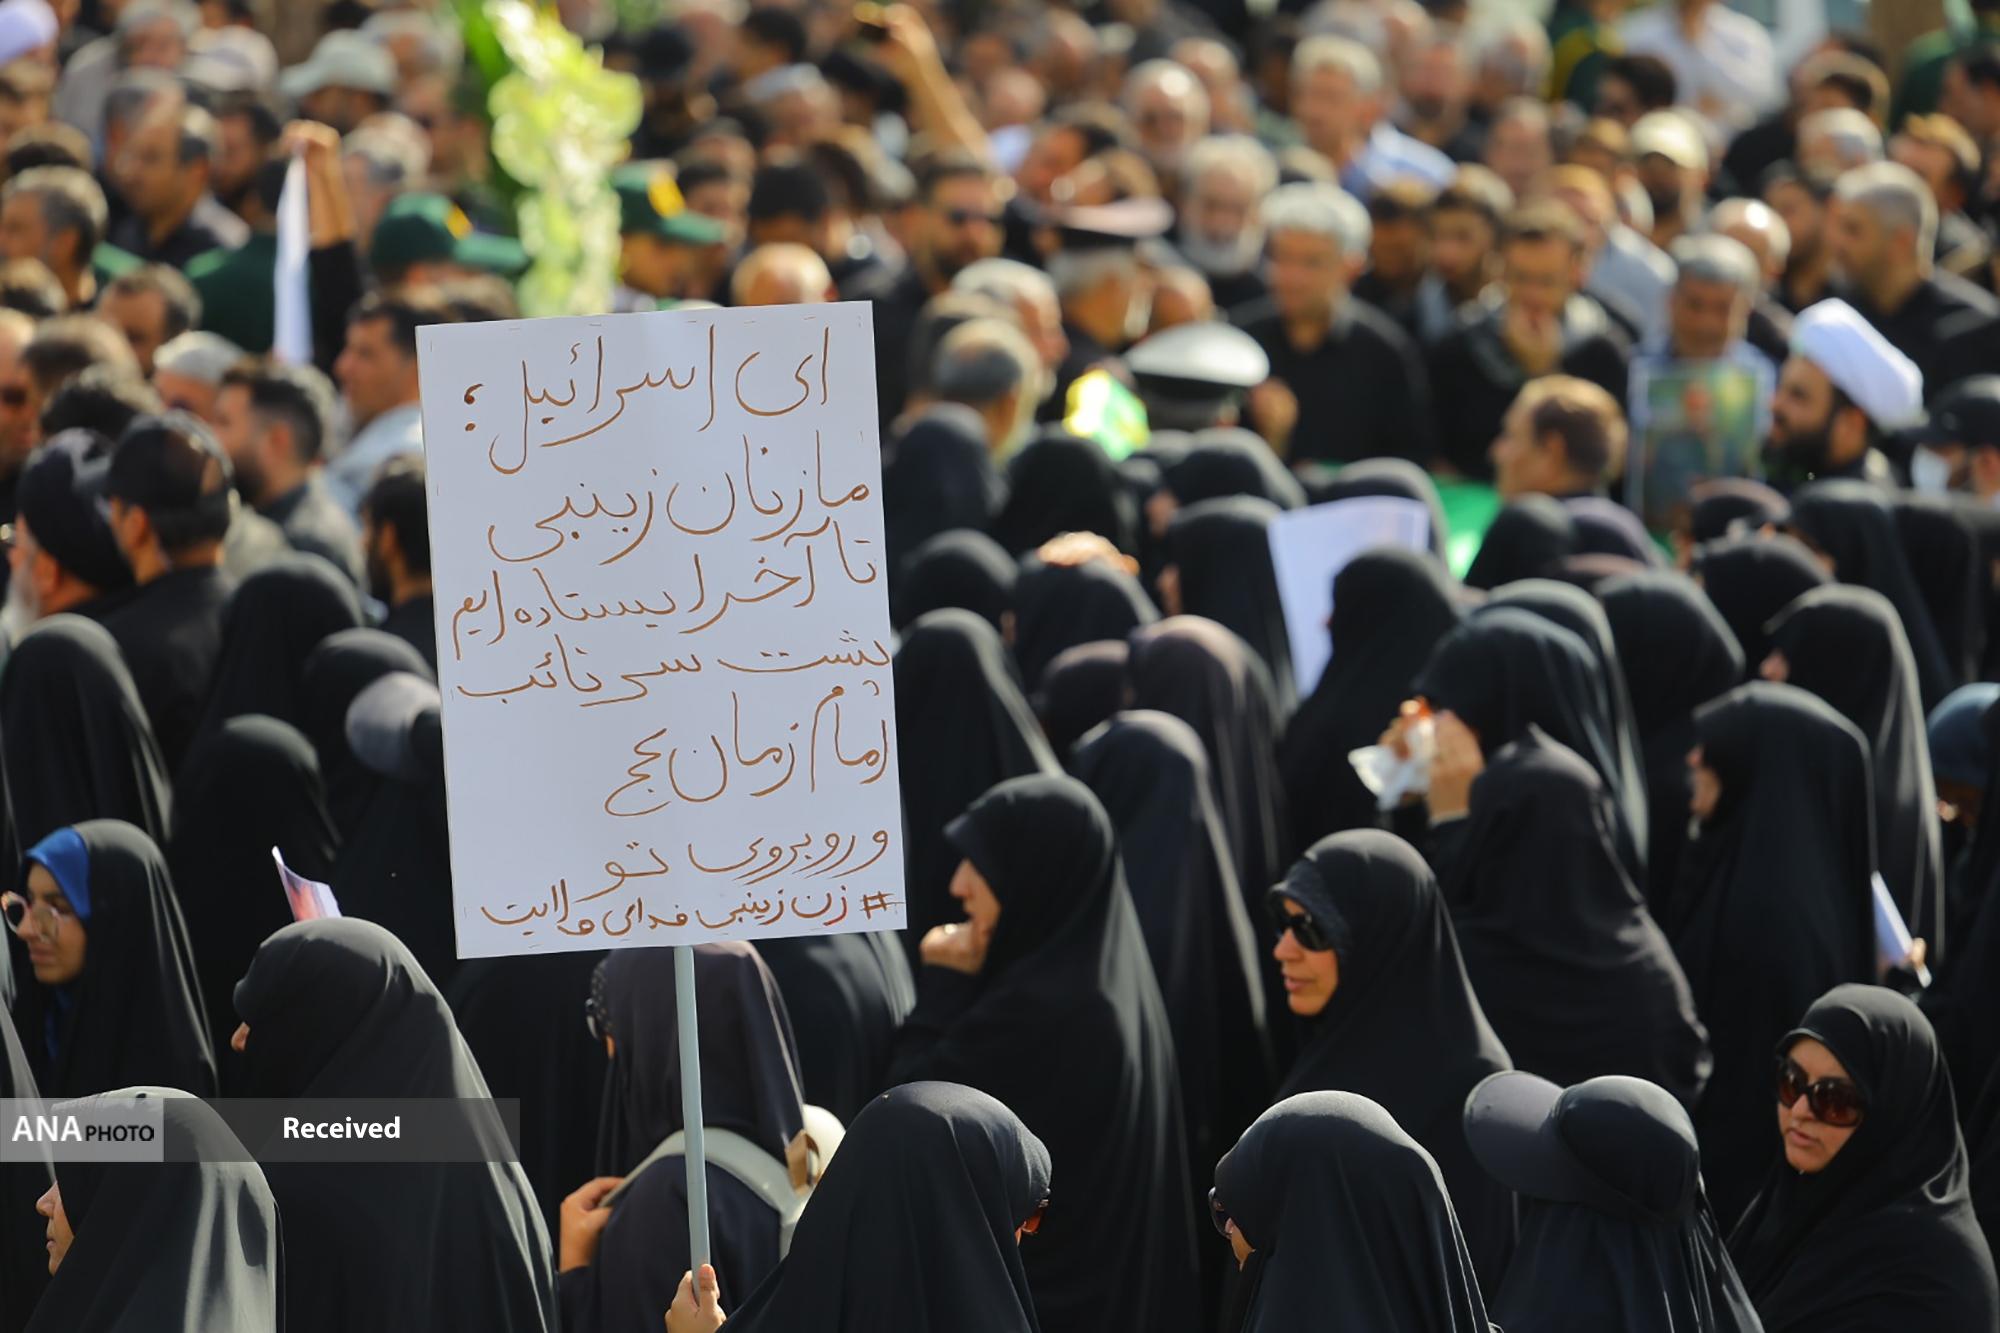 ای اسرائیل؛
ما زنان زینبی
تا آخر ایستاده ایم
پشت سر نائب
امام زمان عج
و روبروی تو
# زن زینبی فدای ولایت
ANA PHOTO
Received